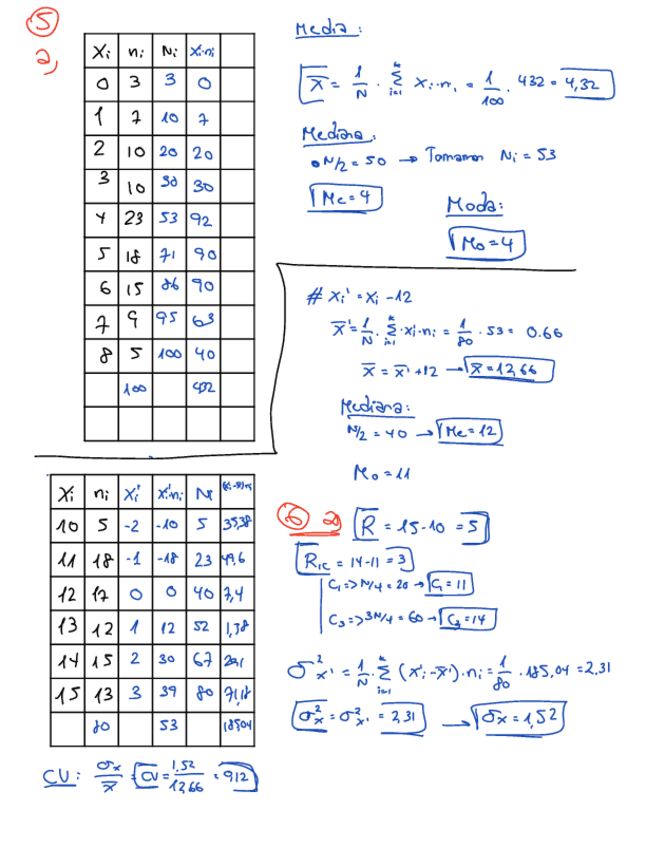 5
a)
Xi ni Ni Xi·ni
0 3 3 0
1 7 10 7
2 10 20 20
3 10 30 30
4 23 53 92
5 18 71 90
6 15 86 90
7 9 95 63
8 5 100 40
100 432
Media:
X̄ = 1/N · Σ(i=1, k) Xi·ni = 1/100 · 432 = 4,32
Mediana:
• N/2 = 50 → Tomamos Ni = 53
Me = 4
Moda:
Mo = 4
# Xi' = Xi - 12
X̄' = 1/N · Σ(i=1, k) ·Xi·ni = 1/80 · 53 = 0.66
X̄ = X̄' + 12 → X̄ = 12,66
Mediana:
N/2 = 40 → Me = 12
Mo = 11
Xi ni Xi' Xi'·ni Ni
10 5 -2 -10 5 35,38
11 18 -1 -18 23 49,6
12 17 0 0 40 7,4
13 12 1 12 52 1,38
14 15 2 30 67
15 13 3 39 80 71,18
80 53 185,04
6 a) R = 15-10 = 5
RIC = 14-11 = 3
C1 => N/4 = 20 → C1 = 11
C3 => 3N/4 = 60 → C3 = 14
σ²x' = 1/N · Σ(i=1, k) (X'i - X̄')·ni = 1/80 · 185,04 = 2,31
σ²x = σ²x' = 2,31 → σx = 1,52
CV: σx/X̄ CV = 1,52/12,66 = 0,12